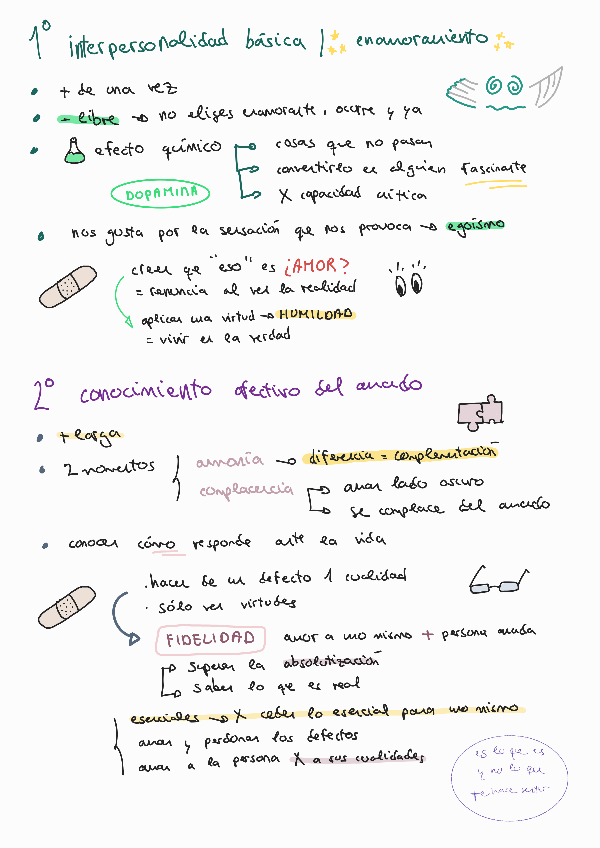 1º interpersonalidad básica / enamoramiento
• + de una vez
• - libre → no eliges enamorarte, ocurre y ya
• efecto químico → cosas que no pasan
→ convertirlo en alguien fascinante
DOPAMINA → X capacidad crítica
• nos gusta por la sensación que nos provoca → egoísmo
creer que "eso" es ¿AMOR?
= renuncia al ver la realidad
aplicar una virtud → HUMILDAD
= vivir en la verdad
2º conocimiento afectivo del amado
• + larga
• 2 momentos armonía → diferencia = complementación
complacencia → amar lado oscuro
→ se complace del amado
• conocer cómo responde ante la vida
· hacer de un defecto 1 cualidad
· sólo ver virtudes
FIDELIDAD amor a uno mismo + persona amada
→ superar la absolutización
→ saber lo que es real
esenciales → X ceder lo esencial para uno mismo
amar y perdonar los defectos
amar a la persona X a sus cualidades
es lo que es
y no lo que
te hace sentir